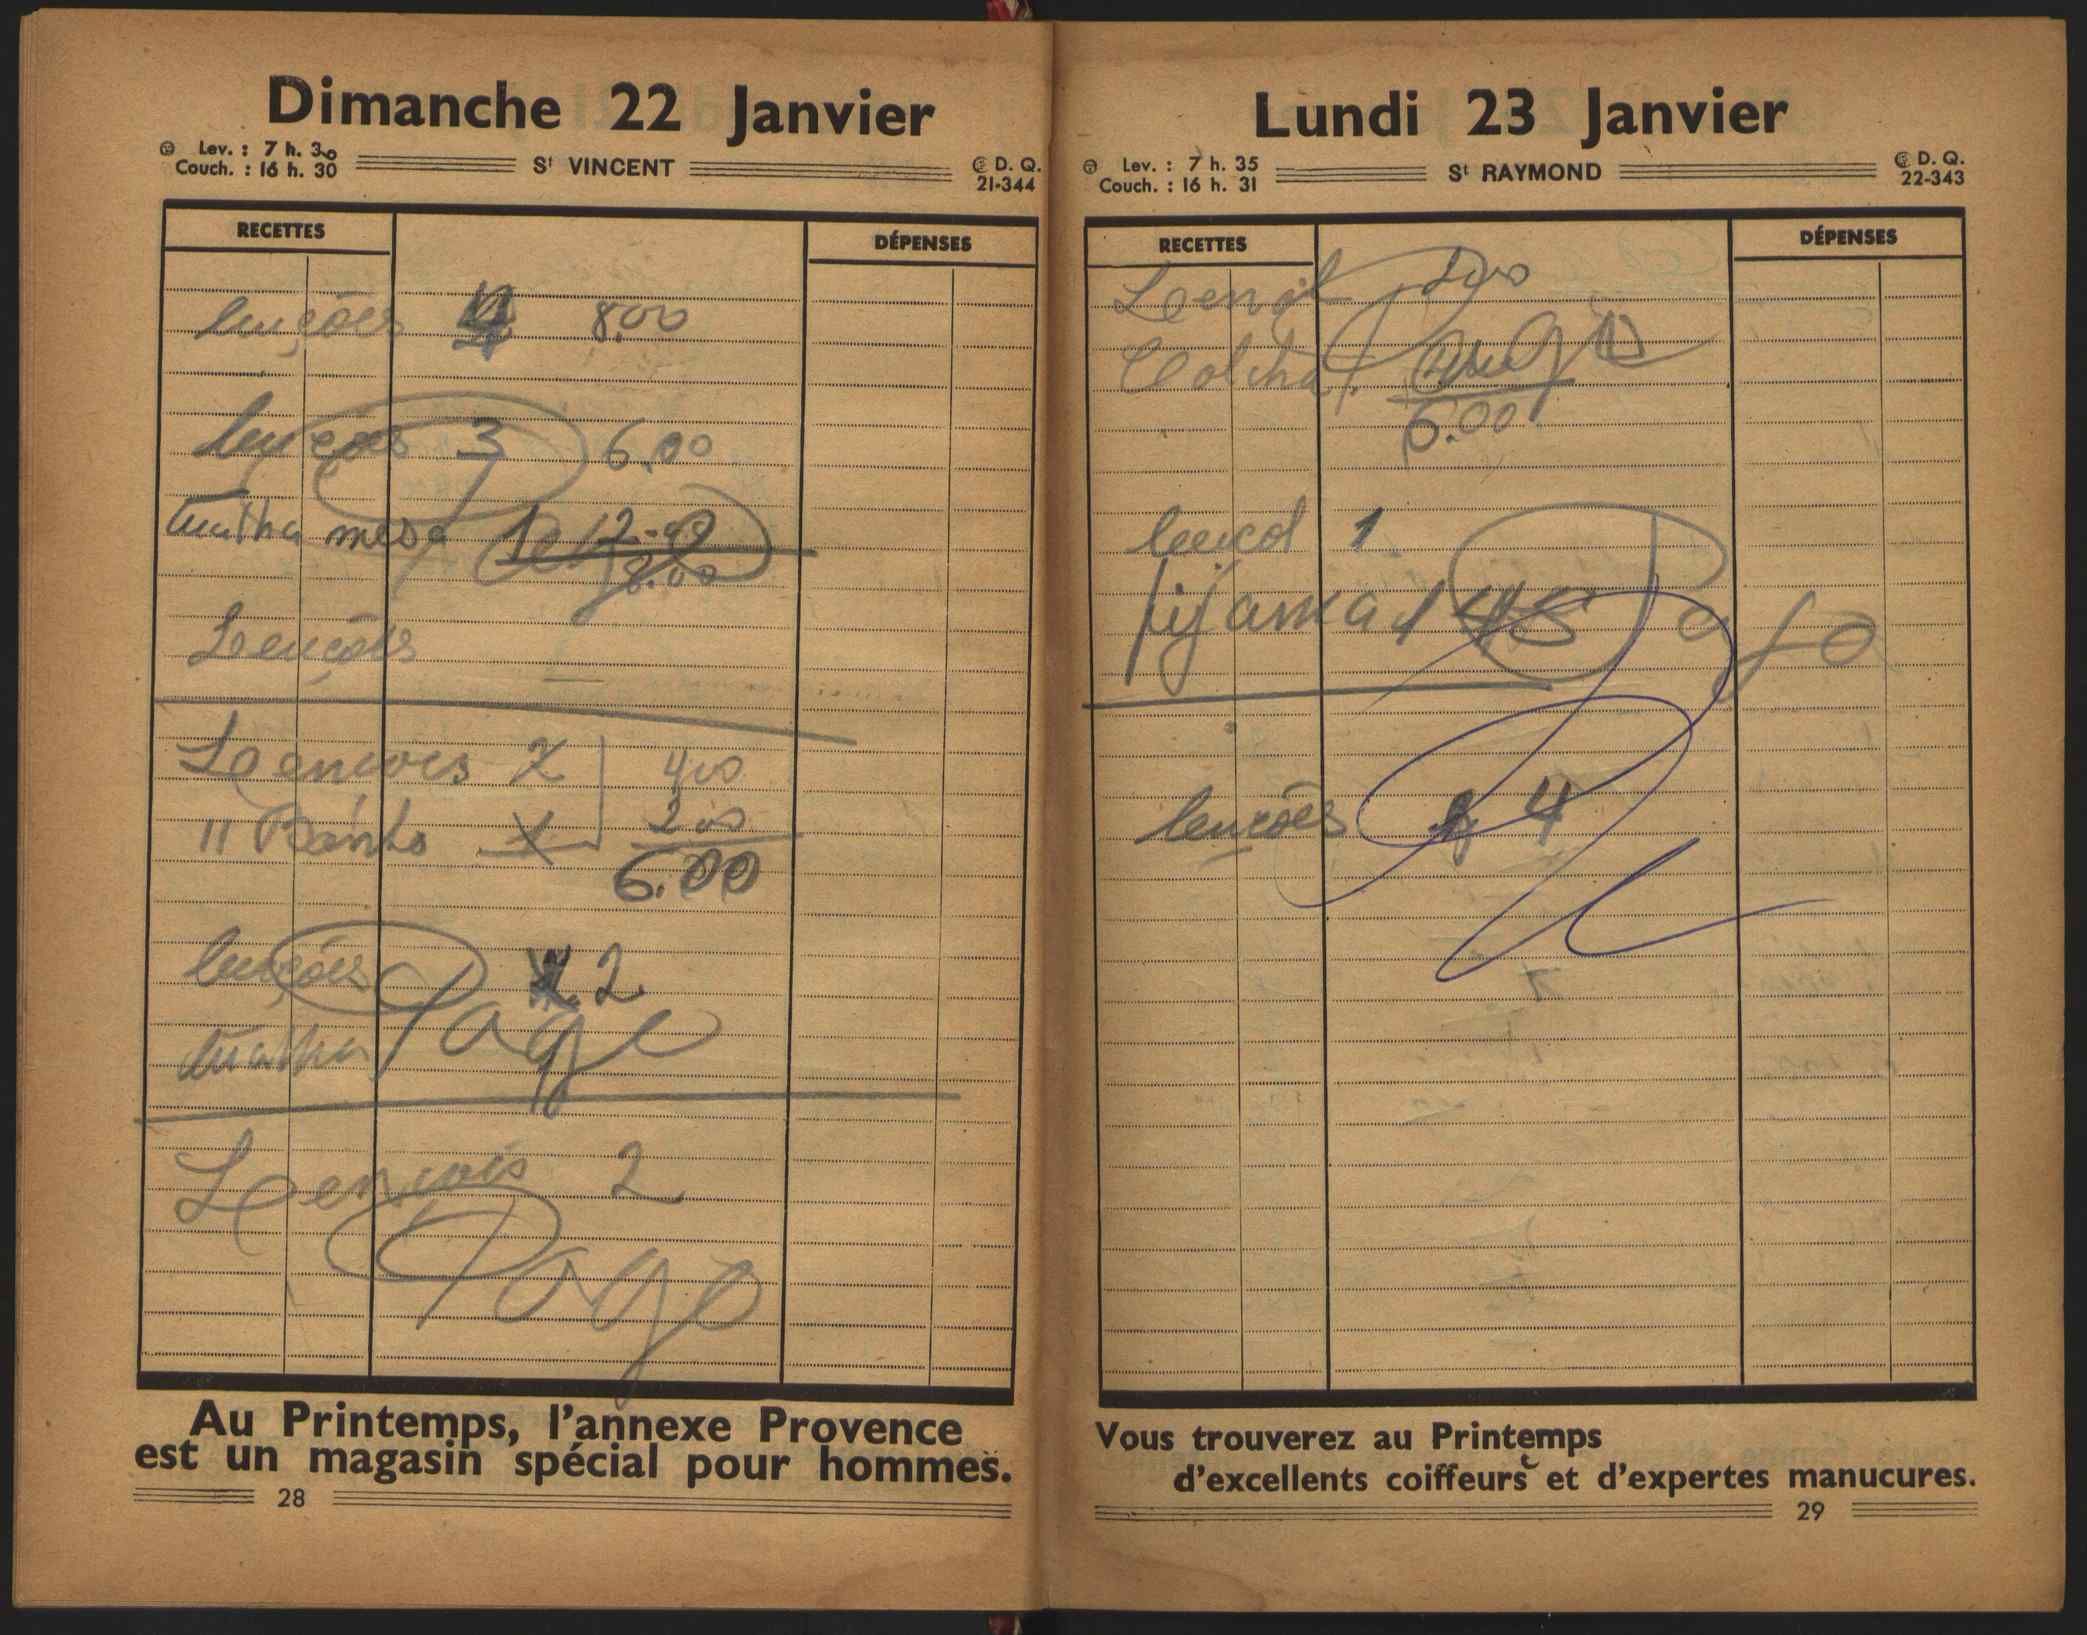 Dimanche 22 Janvier
Lev. : 7 h. 30
Couch. : 16 h. 30
St VINCENT
D. Q.
21-344
RECETTES
DÉPENSES
lençóes 4 8,00
lençoes 3 6,00
toalha mesa 1 2-00
8.00
Lençóes
Lençoes 2 4,00
11 Banho 1 2,00
6.00
lençóes 2
Pago
toalha
Lençoes 2
Pago
Au Printemps, l'annexe Provence
est un magasin spécial pour hommes.
28
Lundi 23 Janvier
Lev. : 7 h. 35
Couch. : 16 h. 31
St RAYMOND
D. Q.
22-343
RECETTES
DÉPENSES
Lençol 2,00
Colcha
Pago
6.00
lençol 1
pijama 1
Pago
lençóes 4
Vous trouverez au Printemps
d'excellents coiffeurs et d'expertes manucures.
29